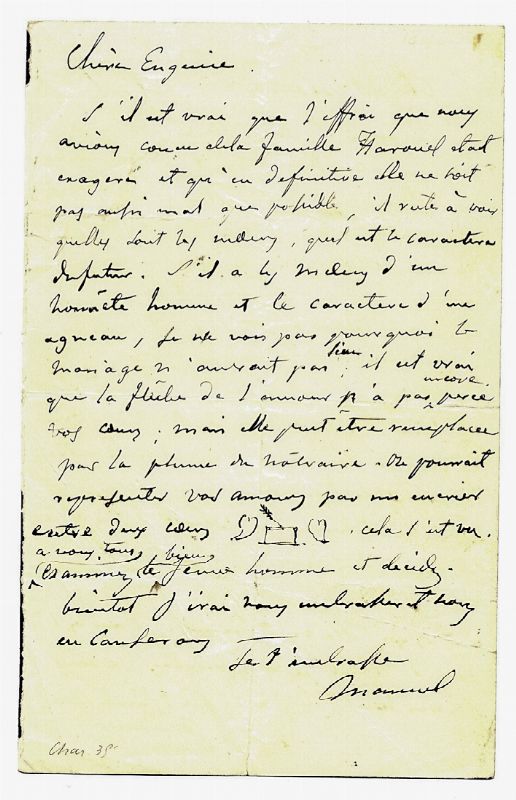 Chère Eugenie.
S'il est vrai que l'effroi que nous
avions conçu de la famille Harouel était
exageré et qu'en definitive elle ne soit
pas aussi mal que possible, il reste à voir
quelles sont les mœurs, quel est le caractère
du futur. S'il a les mœurs d'un
honnête homme et le caractère d'un
agneau, je ne vois pas pourquoi le
mariage n'aurait pas lieu, il est vrai
que la flêche de l'amour n'a pas encore percé
vos cœurs, mais elle peut être remplacée
par la plume du notaire. On pourrait
représenter vos amours par un encrier
entre deux cœurs . cela s'est vu.
Examinez à vous tous, bien, le jeune homme et décidez.
bientôt j'irai vous embrasser et nous
en causerons
Je t'embrasse
Char. 35